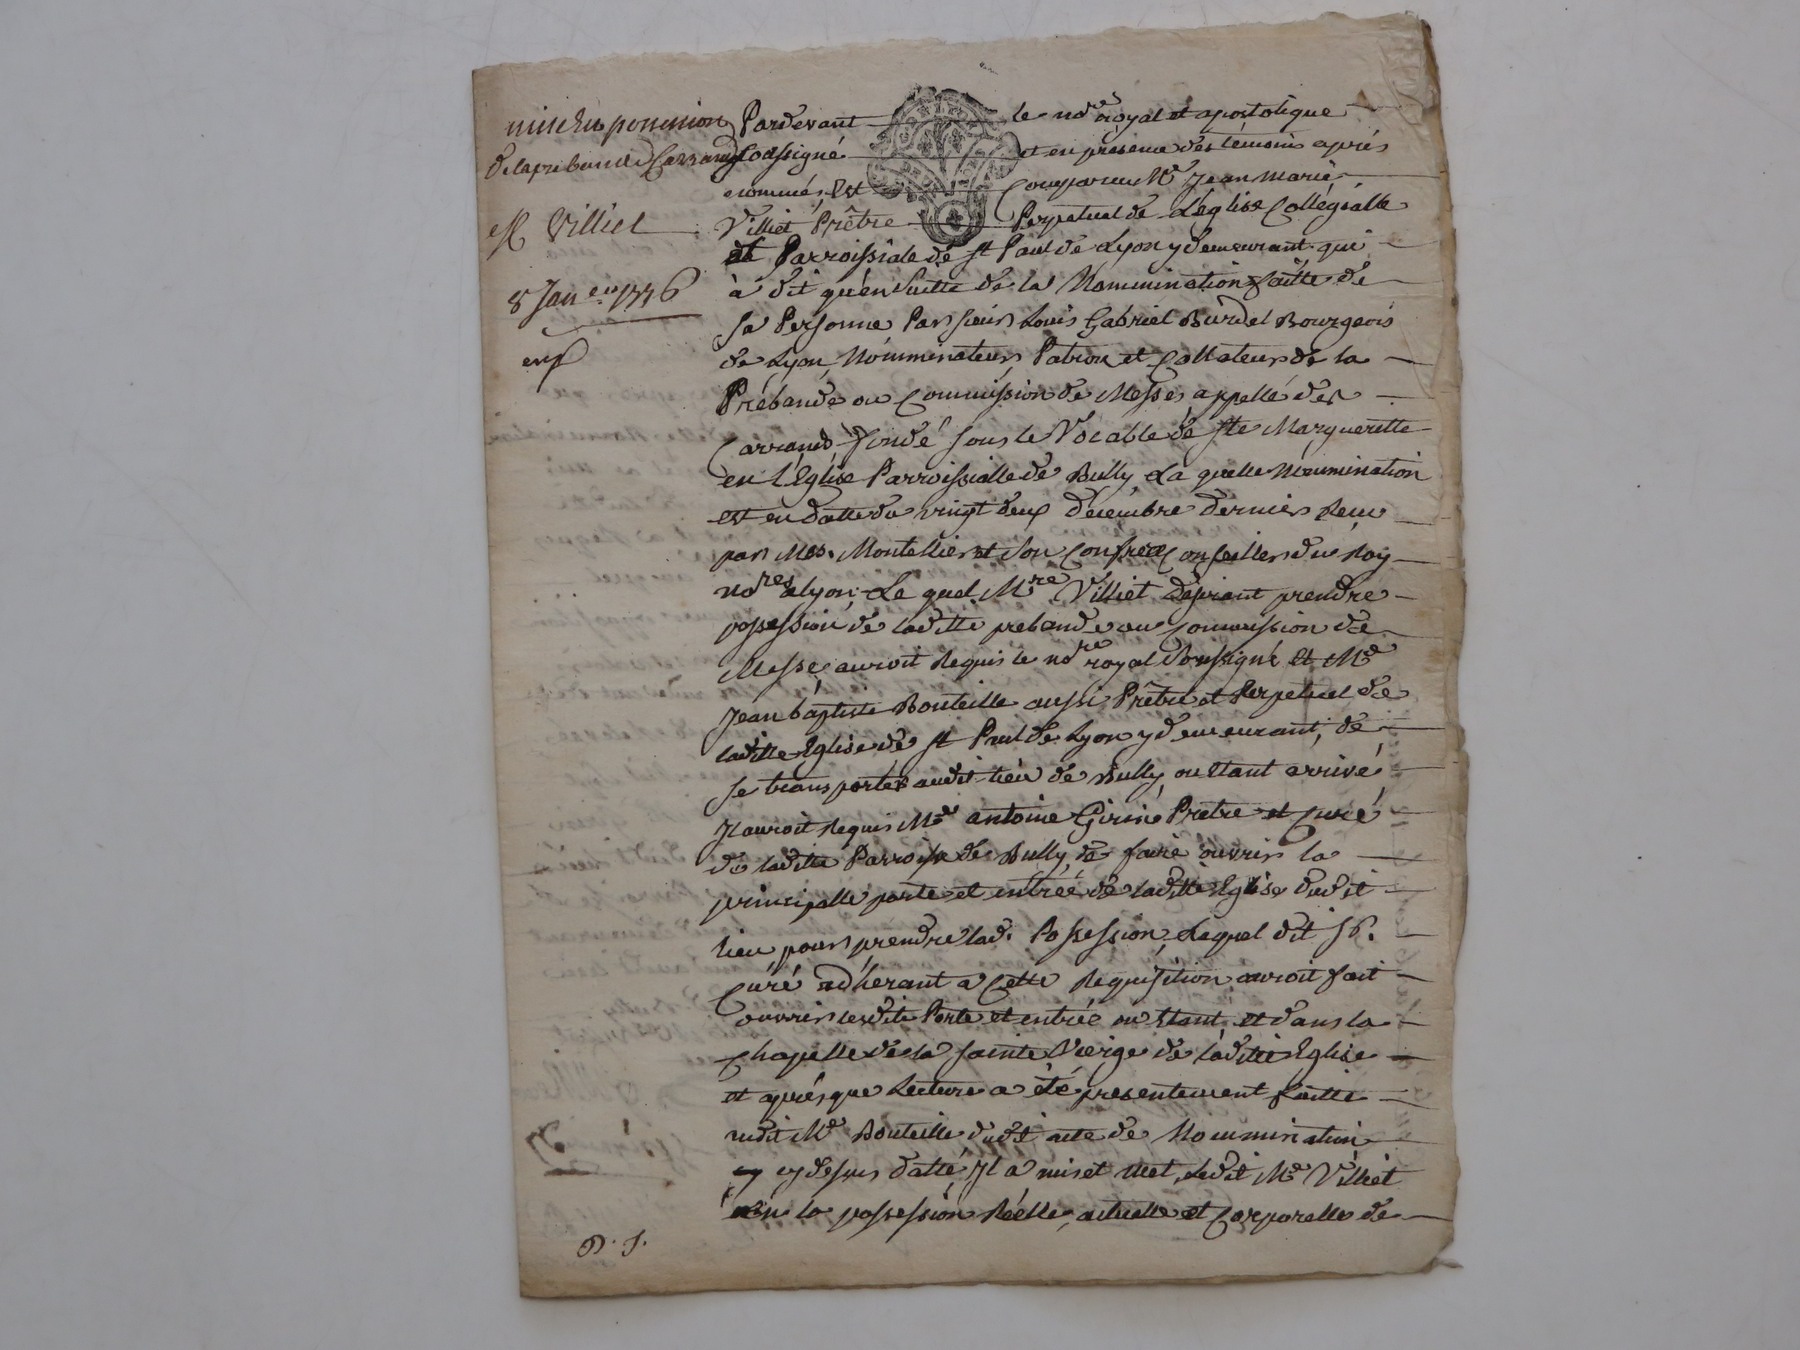 mise en possession
de la prebande Carrand
Mr Villiet
8 Janer 1776
exp
Pardevant le nore royal et apostolique
soussigné et en présence des témoins aprés
nommés, Est Comparu Mre Jean Marie
Villiet Prêtre Perpetuel de L'eglise Collégialle
et Parroissiale de st Paul de Lyon y demeurant, qui
à dit qu'en suitte de la Nommination faitte de
sa Personne Par sieur Louis Gabriel Burdel Bourgeois
de Lyon, Nomminateur, Patron et Collateur de la
Prébande ou Commission de Messes appellé des
Carrand fondé sous le Vocable de ste Margueritte
en l'Eglise Parroissialle de Bully, La quelle Nommination
est en datte du vingt deux décembre dernier Reçu
par Mes. Montellier et son Confrere Conseillers du Roy
nores a lyon; Le quel Mre Villiet desirant prendre
possession de laditte prebande ou Commission de
Messe, auroit Requis le nore royal soussigné et Me
Jean baptiste Bouteille aussi Prêtre et Perpetuel de
laditte Eglise de st Paul de Lyon y demeurant, de
se transporter audit lieu de Bully, ou Etant arrivé,
Il auroit Requis Me antoine Giriné Prêtre et Curé
de laditte Parroisse de Bully, de faire ouvrir la
principalle porte et entrée de laditte Eglise dudit
lieu pour prendre lad. Possession, Lequel dit sr.
Curé adhérant a Cette Requisition auroit fait
ouvrir lesdite Porte et entrée ou Etant, et dans la
Chapelle de la sainte Vierge de laditte Eglise
et après que Lecture a été presentement faitte
audit Me Bouteille dudit acte de Nommination
cy dessus datté, Il a mis et met, Ledit Me Villiet
en la possession Réelle, actuelle et Corporelle de
P. J.